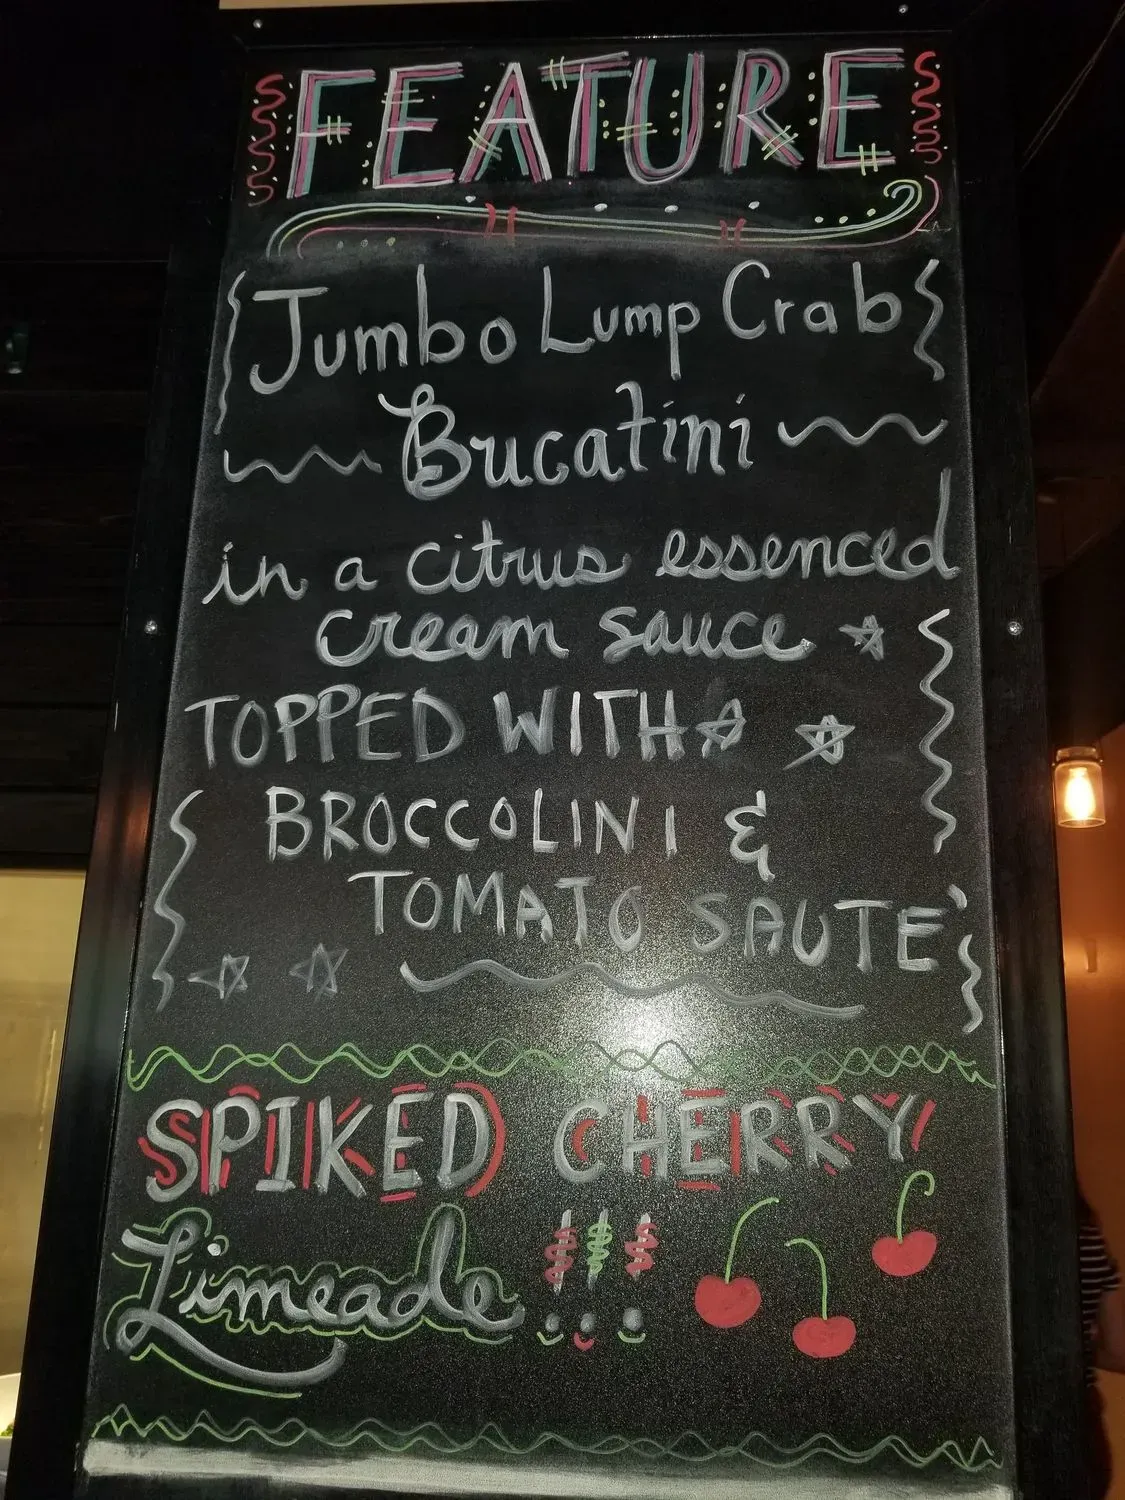 FEATURE
Jumbo Lump Crab
Bucatini
in a citrus essenced
cream sauce
TOPPED WITH
BROCCOLINI &
TOMATO SAUTE'
SPIKED CHERRY
Limeade !!!